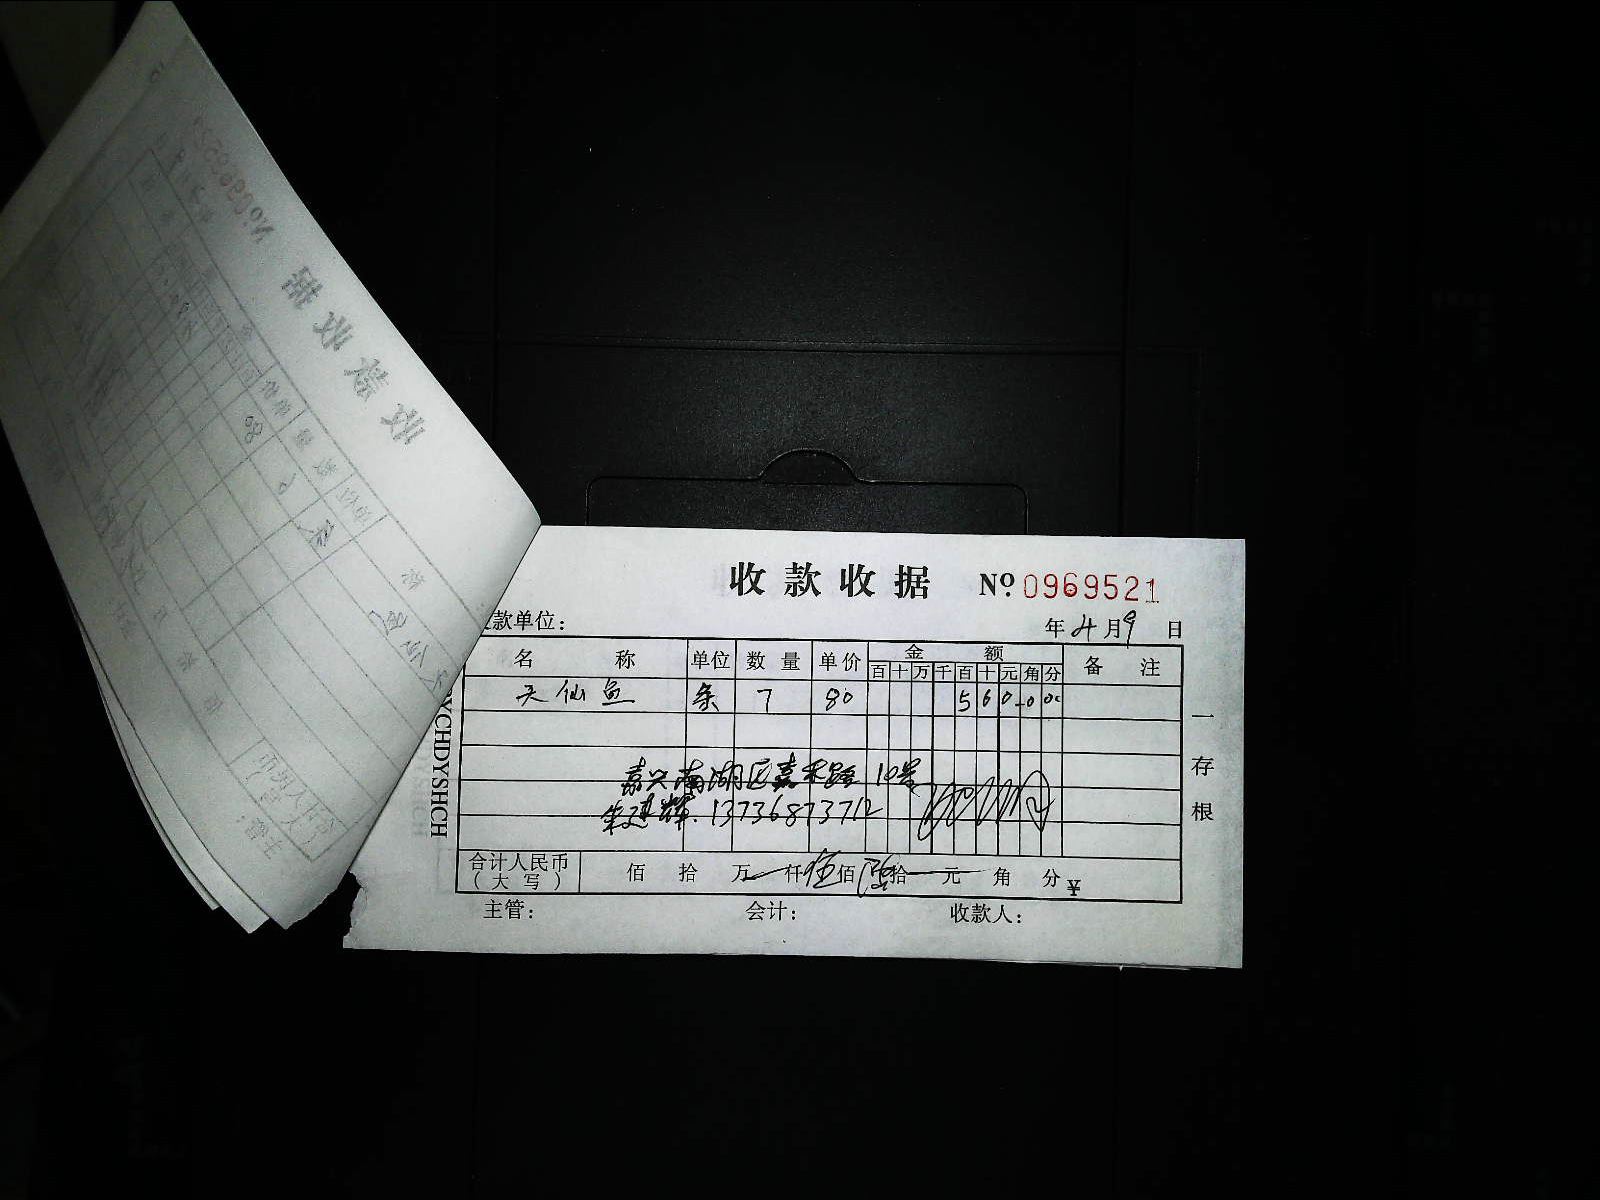 收款收据 Nº 0969521
款单位： 年 4 月 9 日
名 称 单位 数 量 单价 金 额 备 注
百 十 万 千 百 十 元 角 分
天仙鱼 条 7 80 5 6 0 0 0
嘉兴南湖区嘉禾路 10号
朱建辉 13736873712
合计人民币（大 写） 佰 拾 万 仟 伍 佰 陆 拾 元 角 分 ¥
主管： 会计： 收款人：
一存根
YCHDYSHCH
收款收据